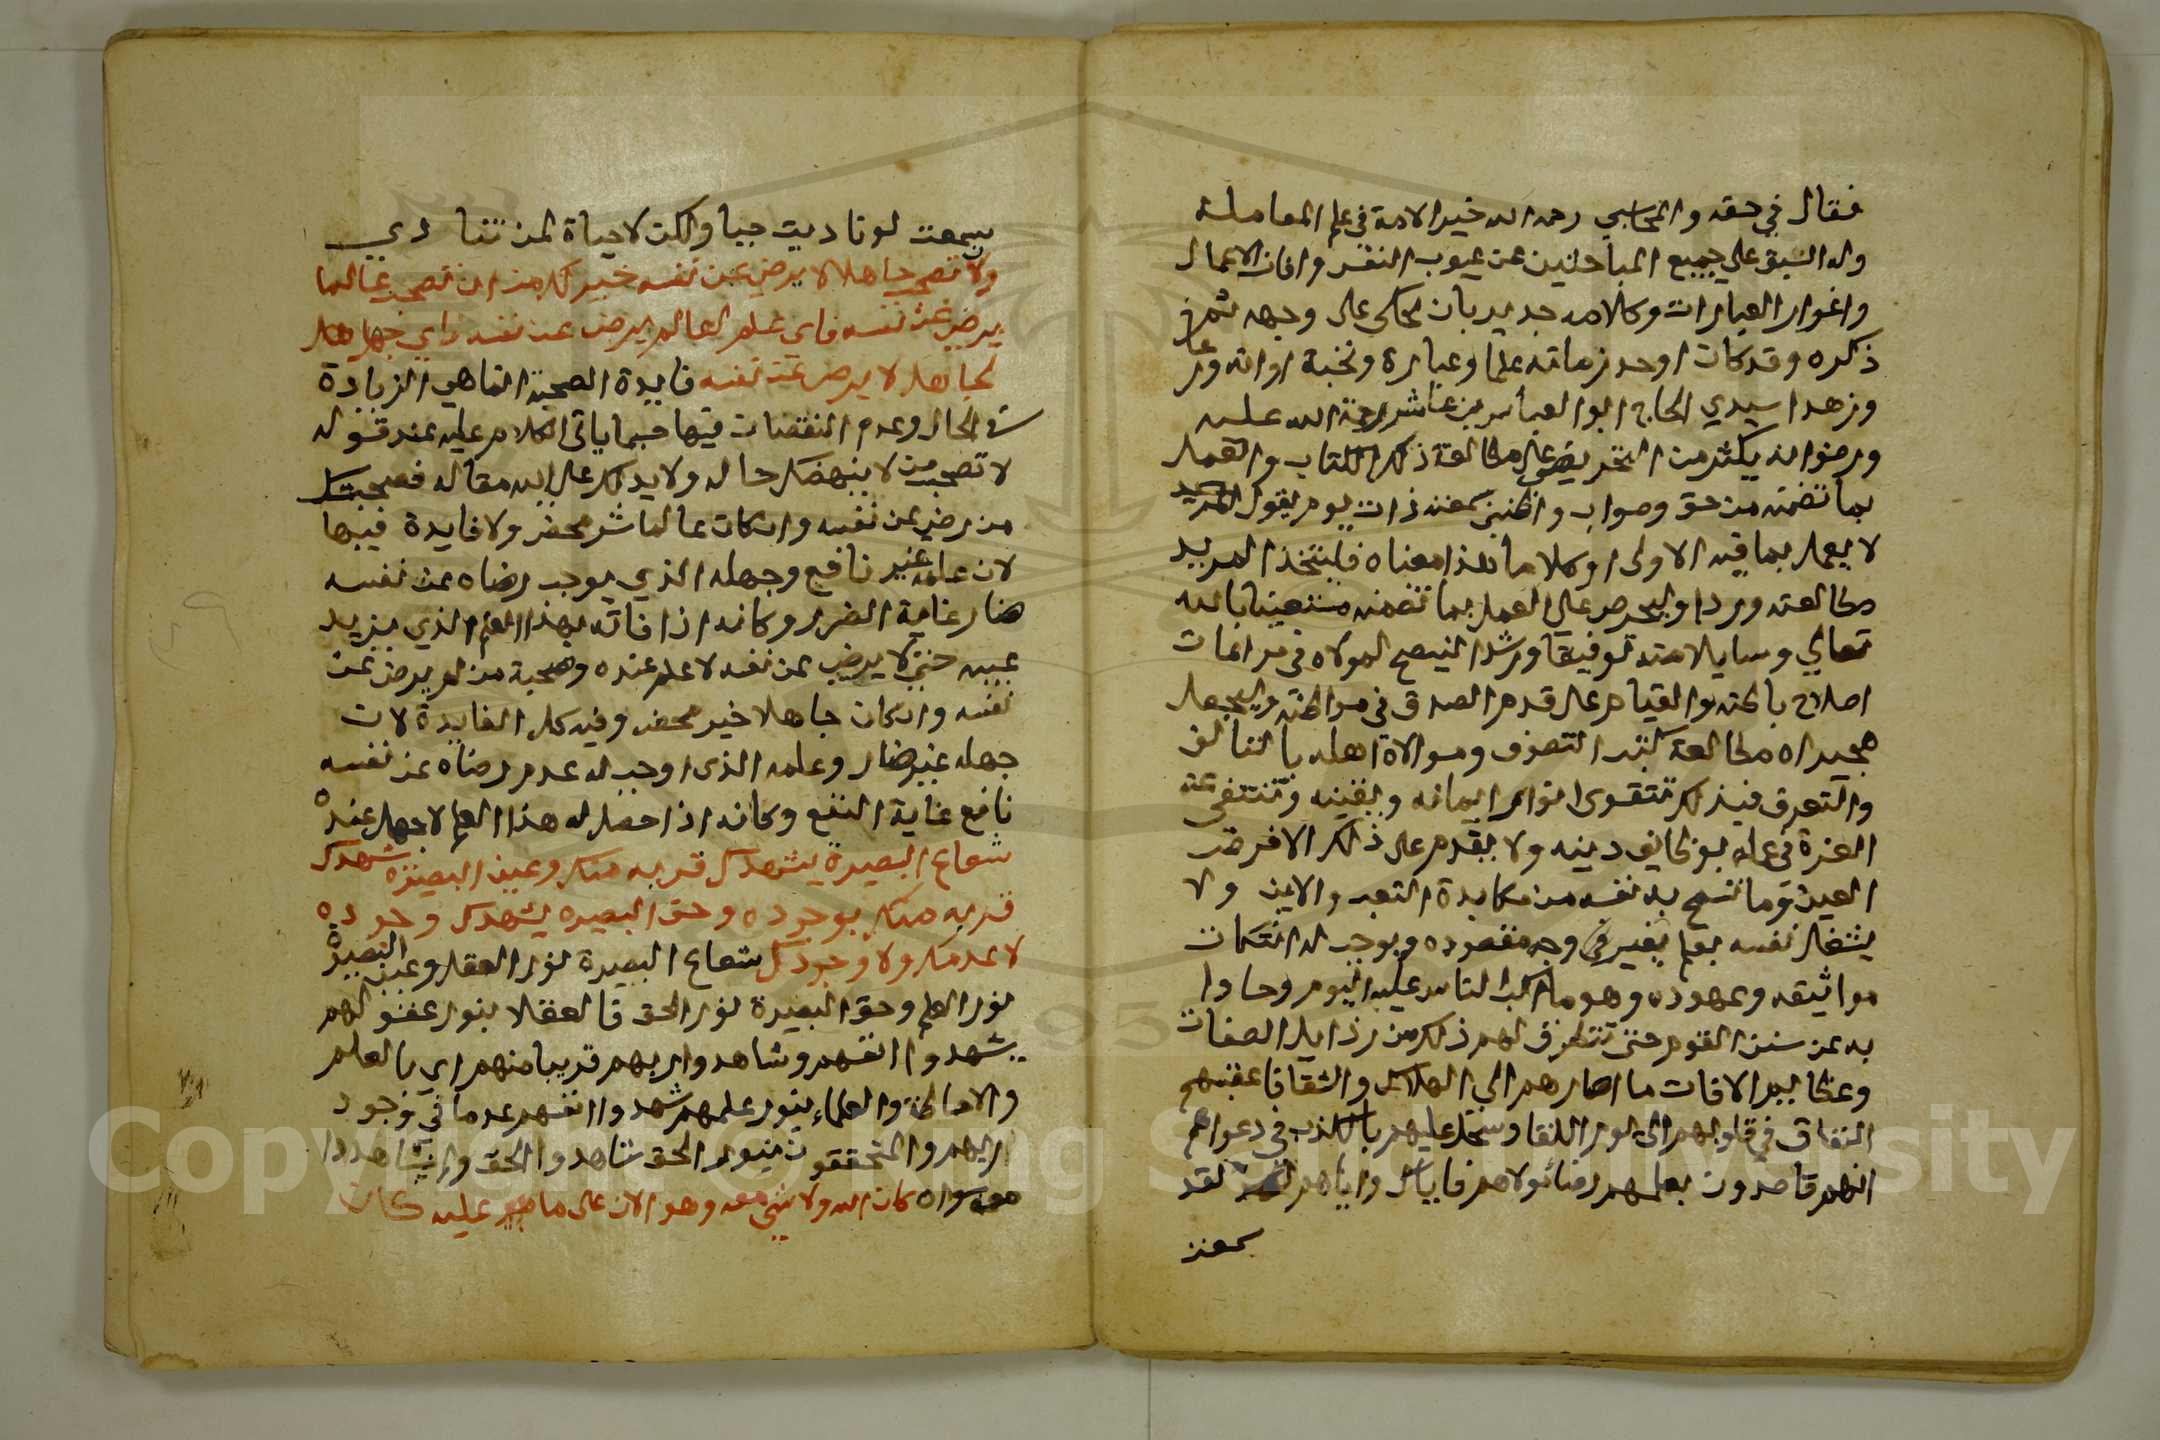 فقال في حقه والمحاسبي رحمه الله خير الامة في علم المعاملة
وله السبق علي جميع الباحثين عن عيوب النفس وافات الاعمال
واغوار العبادات وكلامه جدير بان يحكى على وجهه ثم
ذكره وقد كان اوحد زمانه علما وعبادة ونخبة اوانه ورعا
وزهدا سيدي الحاج ابو العباس بن عاشر رحمة الله عليه
ورضوانه يكثر من التحريض على مطالعة ذلك الكتاب والعمل
بما تضمنه من حق وصواب واظنني سمعته ذات يوم يقول
لا يعمل بما فيه الا ولي او كلاما هذا معناه فليتخذ المريد
مطالعته وردا وليحرص على العمل بما تضمنه مستعينا بالله
تعالي وسايلا منه توفيقا ورشدا لينصح لمولاه في مراعات
اصلاح باطنه والقيام على قدم الصدق في مواطنه وليجعل
هجيراه مطالعة كتب التصوف وموالاة اهله بالتالف
والتعرف فبذلك تتقوى انوار ايمانه ويقينه وتنتفي عنه
الغرة في عمله بوظايف دينه ولا يقدم على ذلك الا فرض
العين وما تسمح به نفسه من مكابدة التعب والاين ولا
يشغل نفسه بعلم يغير في وجه مقصوده ويوجب له انتكاث
مواثيقه وعهوده وهو ما اكب الناس عليه اليوم وحادوا
به عن سنن القوم حتى تتطرق لهم ذلك من رذايل الصفات
وعظايم الافات ما اصارهم الي الهلاك والشقا فاعقبهم
النفاق في قلوبهم الى يوم اللقا وسجل عليهم بالكذب في دعواهم
انهم قاصدون بعلمهم رضا مولاهم فاياك واياهم لقد
سمعت
سمعت لو ناديت حيا ولكن لا حياة لمن تنادي
ولان تصحب جاهلا لا يرضي عن نفسه خير لك من ان تصحب عالما
يرضي عن نفسه فاي علم لعالم يرضى عن نفسه واي جهل
لجاهل لا يرضى عن نفسه فايدة الصحبة انما هي الزيادة
في الحال وعدم النقصان فيها حسبما ياتي الكلام عليه عند قوله
لا تصحب من لا ينهضك حاله ولا يدلك على الله مقاله فصحبتك
من رضي عن نفسه وان كان عالما شر محض ولا فايدة فيها
لان علمه غير نافع وجهله الذي يوجب رضاه عن نفسه
ضار غاية الضرر وكانه اذا فاته بهذا العلم الذي يزيد
عيبه حتى لا يرضى عن نفسه لا علم عنده وصحبة من لم يرض عن
نفسه وان كان جاهلا خير محض وفيه كل الفايدة لان
جهله غير ضار وعلمه الذي اوجب له عدم رضاه عن نفسه
نافع غاية النفع وكانه اذا حصل له هذا العلم لا جهل عنده
شعاع البصيرة يشهدك قربه منك وعين البصيرة تشهدك
قربه منك بوجوده وحق البصيره يشهدك وجوده
لا عدمك ولا وجودك شعاع البصيرة نور العقل وعين البصيرة
نور العلم وحق البصيرة نور الحق فالعقلا بنور عقولهم
يشهدوا انفسهم وشاهدوا ربهم قريبا منهم اي بالعلم
والاحاطة والعلماء بنور علمهم شهدوا انفسهم عدما في وجود
ربهم والمتحققون بنور الحق شاهدوا الحق ولم يشاهدوا
معه سواه كان الله ولا شي معه وهو الان على ما عليه كان